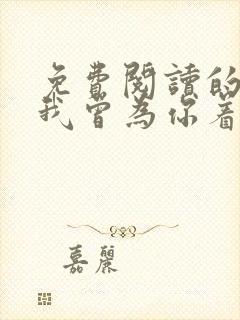 免費閱讀的
我曾為你着
嘉麗